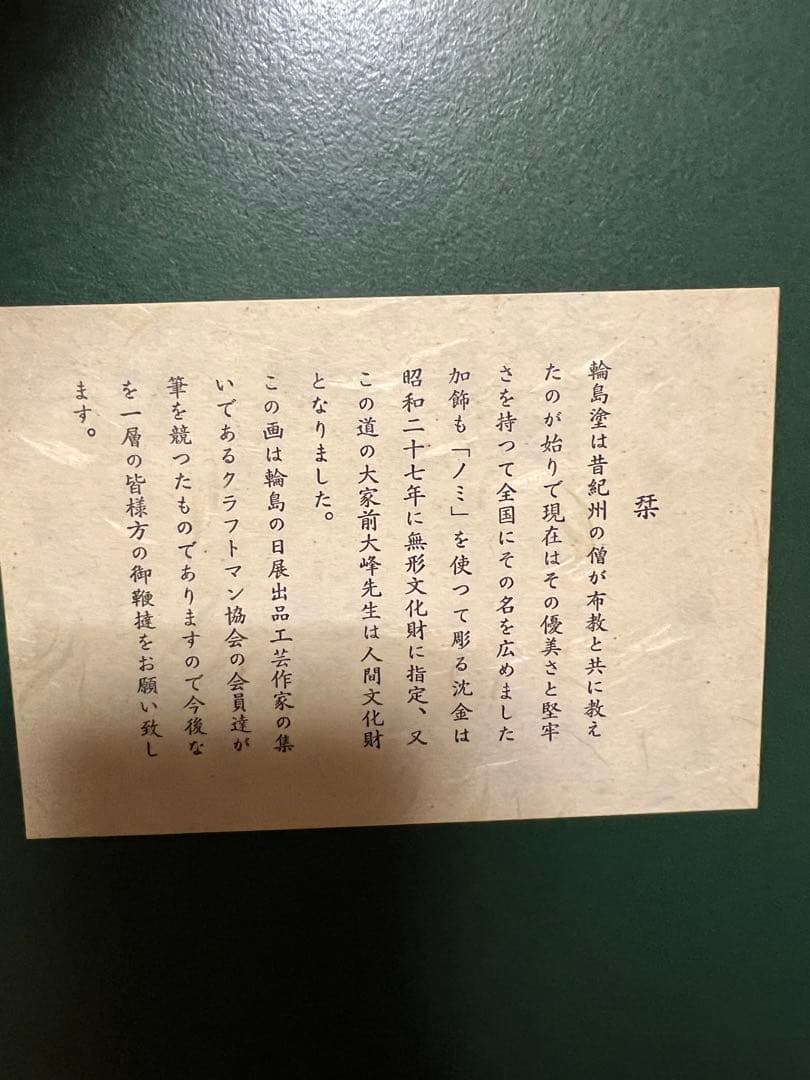 栞
輪島塗は昔紀州の僧が布教と共に教え
たのが始りで現在はその優美さと堅牢
さを持つて全国にその名を広めました
加飾も「ノミ」を使つて彫る沈金は
昭和二十七年に無形文化財に指定、又
この道の大家前大峰先生は人間文化財
となりました。
この画は輪島の日展出品工芸作家の集
いであるクラフトマン協会の会員達が
筆を競つたものでありますので今後な
を一層の皆様方の御鞭撻をお願い致し
ます。